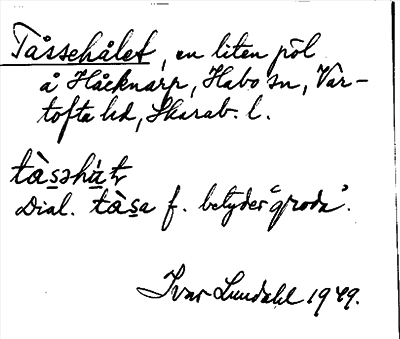 Tåssehålet, en liten pöl
å Håcknarp, Habo sn, Var-
tofta hd, Skarab. l.
Dial. tàs̲a f. betyder "groda".
Ivar Lundahl 1949.